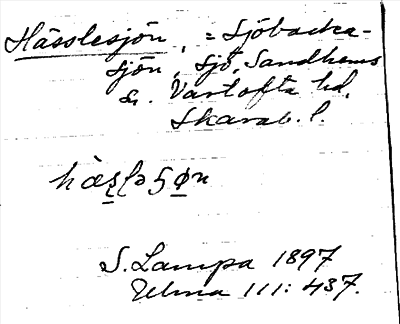 Hässlesjön, = Sjöbacka-
sjön, sjö, Sandhems
sn. Vartofta hd.
Skarab. l.
S. Lampa 1897
Ulma 111: 437.